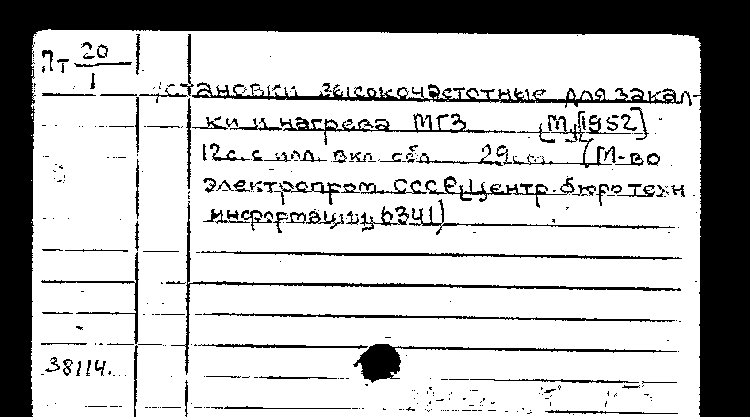 Пт 20
1
Установки высокочастотные для закал-
ки и нагрева МГЗ [М., 1952]
12 с. с илл. вкл. обл. 29 cm. (М-во
электропром. СССР, Центр. бюро техн
информации, 6341)
38114.